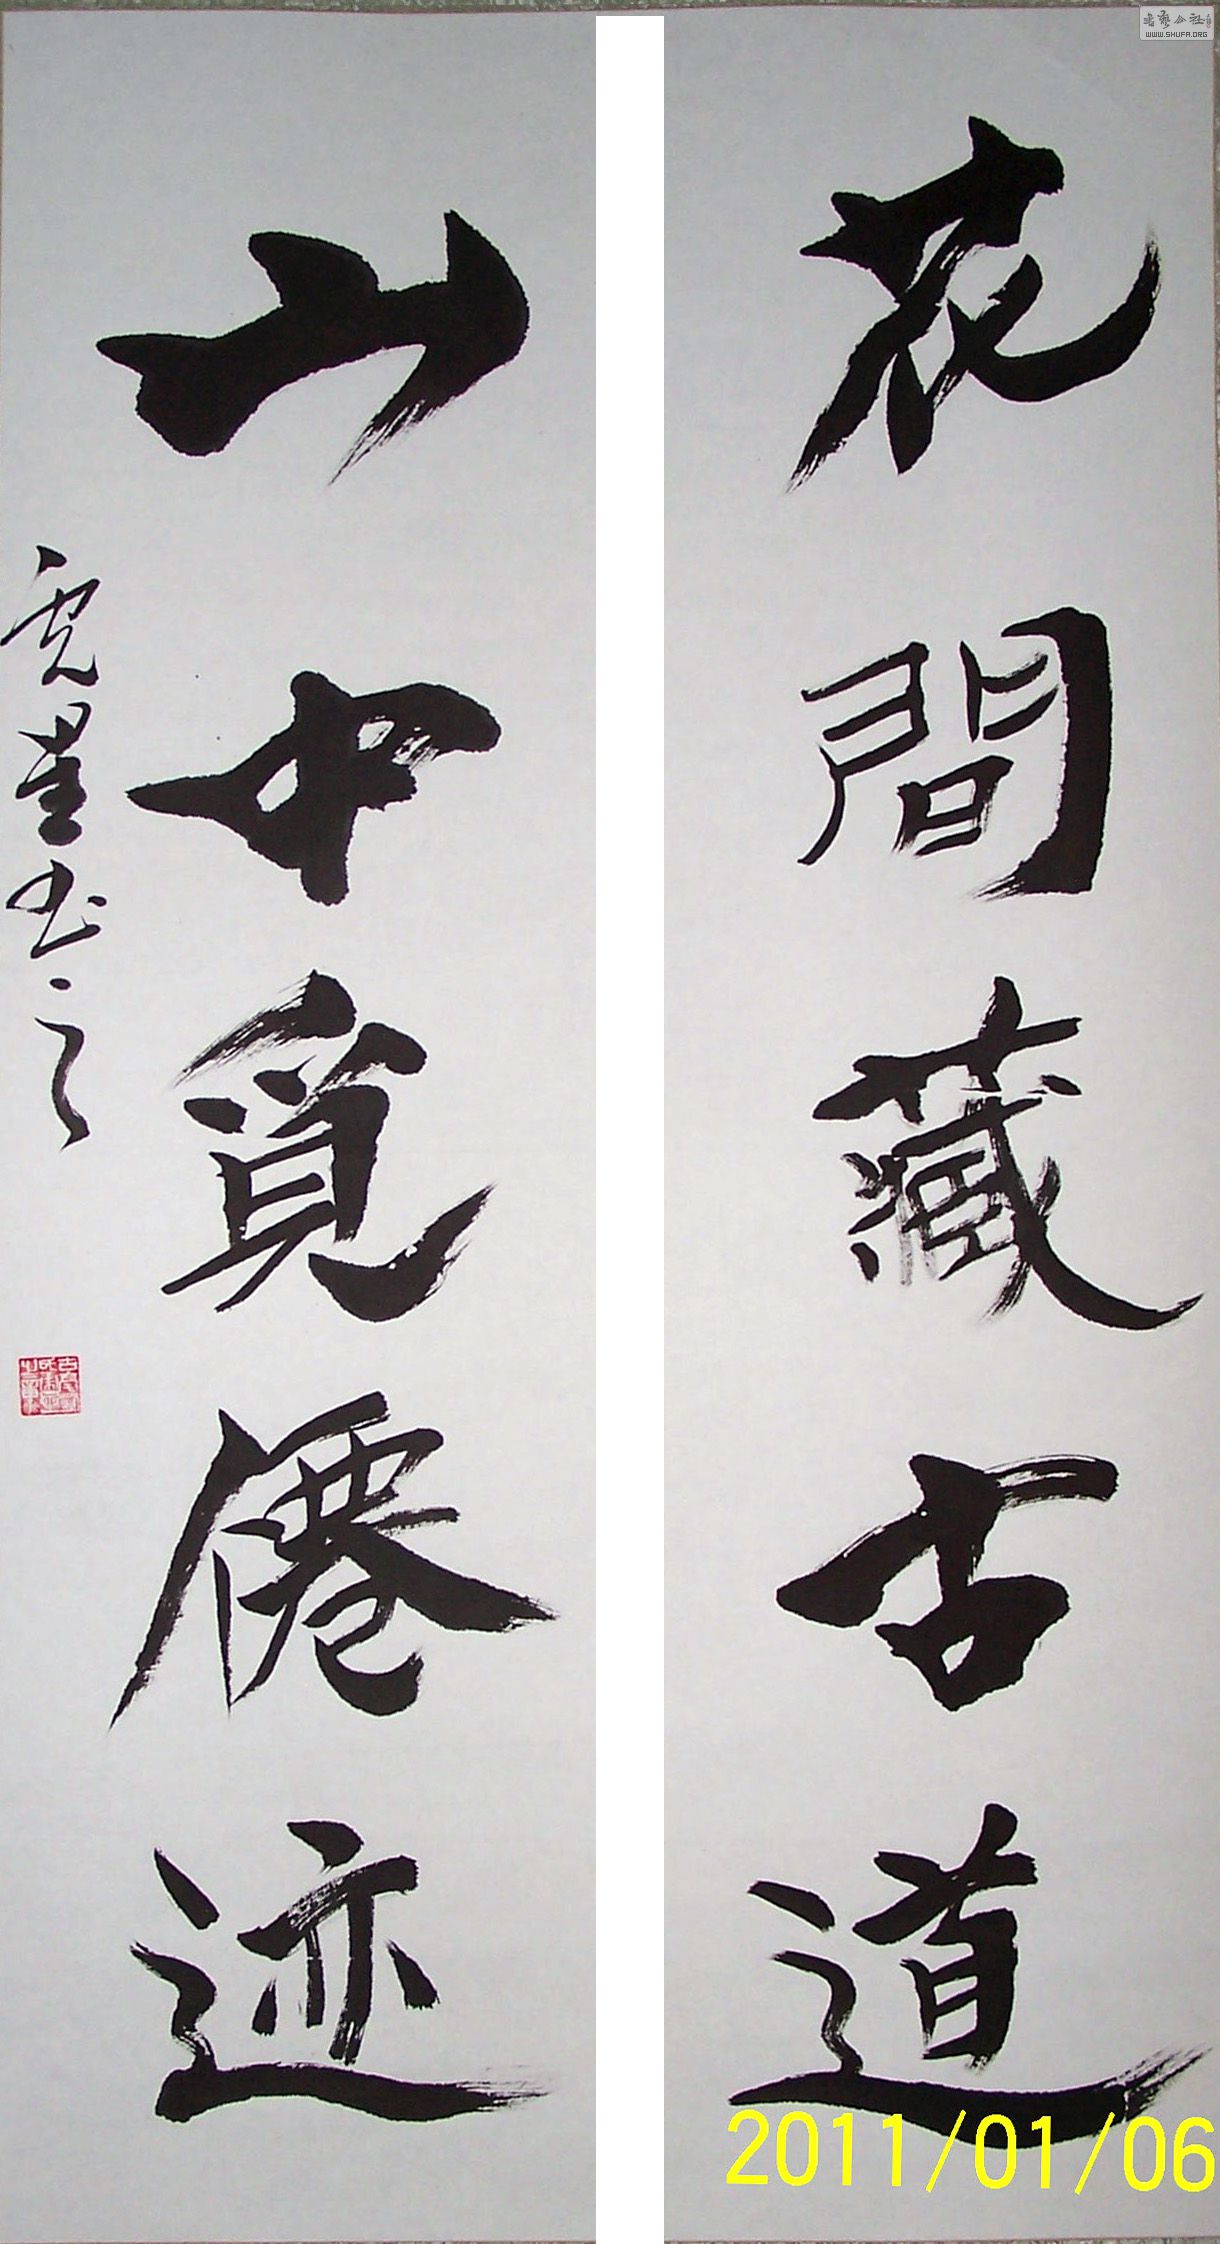 花間藏古道
山中覓僊迹
虎星书之
書藝公社
WWW.SHUFA.ORG
2011/01/06